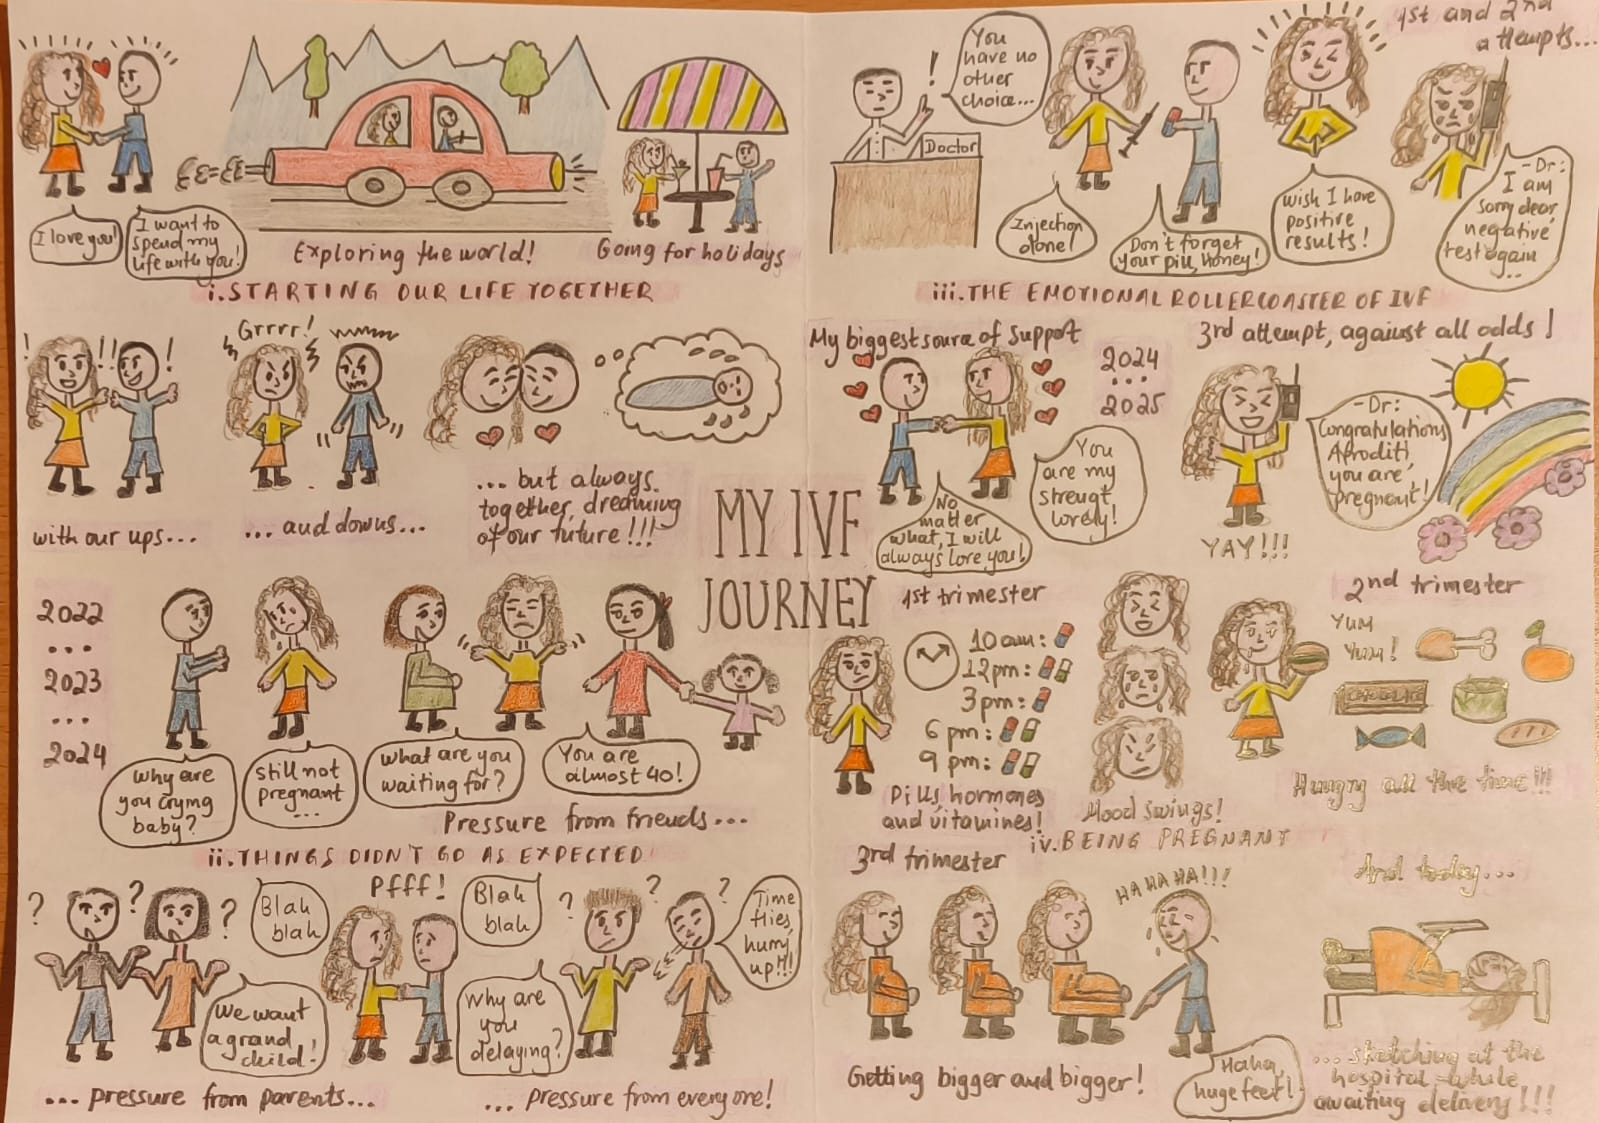 I love you!
I want to
spend my
life with you!
Exploring the world!
Going for holidays
i. STARTING OUR LIFE TOGETHER
!
!!
!
with our ups...
Grrrr!
... and downs...
... but always
together, dreaming
of our future!!!
MY IVF
JOURNEY
2022
...
2023
...
2024
Why are
you crying
baby?
Still not
pregnant
...
What are you
waiting for?
You are
almost 40!
Pressure from friends...
ii. THINGS DIDN'T GO AS EXPECTED
? ? ?
Blah
blah
We want
a grand
child!
Pfff!
Blah
blah
Why are
you
delaying?
? ? ?
Time
flies,
hurry
up!!!
... pressure from parents...
... pressure from everyone!
!
You
have no
other
choice...
Doctor
Injection
done!
Don't forget
your pill, honey!
Wish I have
positive
results!
1st and 2nd
attempts...
- Dr:
I am
sorry dear,
negative
test again
...
iii. THE EMOTIONAL ROLLERCOASTER OF IVF
My biggest source of support
No
matter
what, I will
always love you!
You
are my
strengt
lovely!
2024
...
2025
3rd attempt, against all odds!
- Dr:
Congratulations
Afroditi,
you are
pregnant!
YAY!!!
1st trimester
10 am:
12 pm:
3 pm:
6 pm:
9 pm:
Pills, hormones
and vitamines!
Mood swings!
2nd trimester
YUM
YUM!
CHOCOLATE
Hungry all the time!!!
iv. BEING PREGNANT
3rd trimester
HAHAHA!!!
Haha,
huge feet!
Getting bigger and bigger!
And today...
... sketching at the
hospital while
awaiting delivery!!!